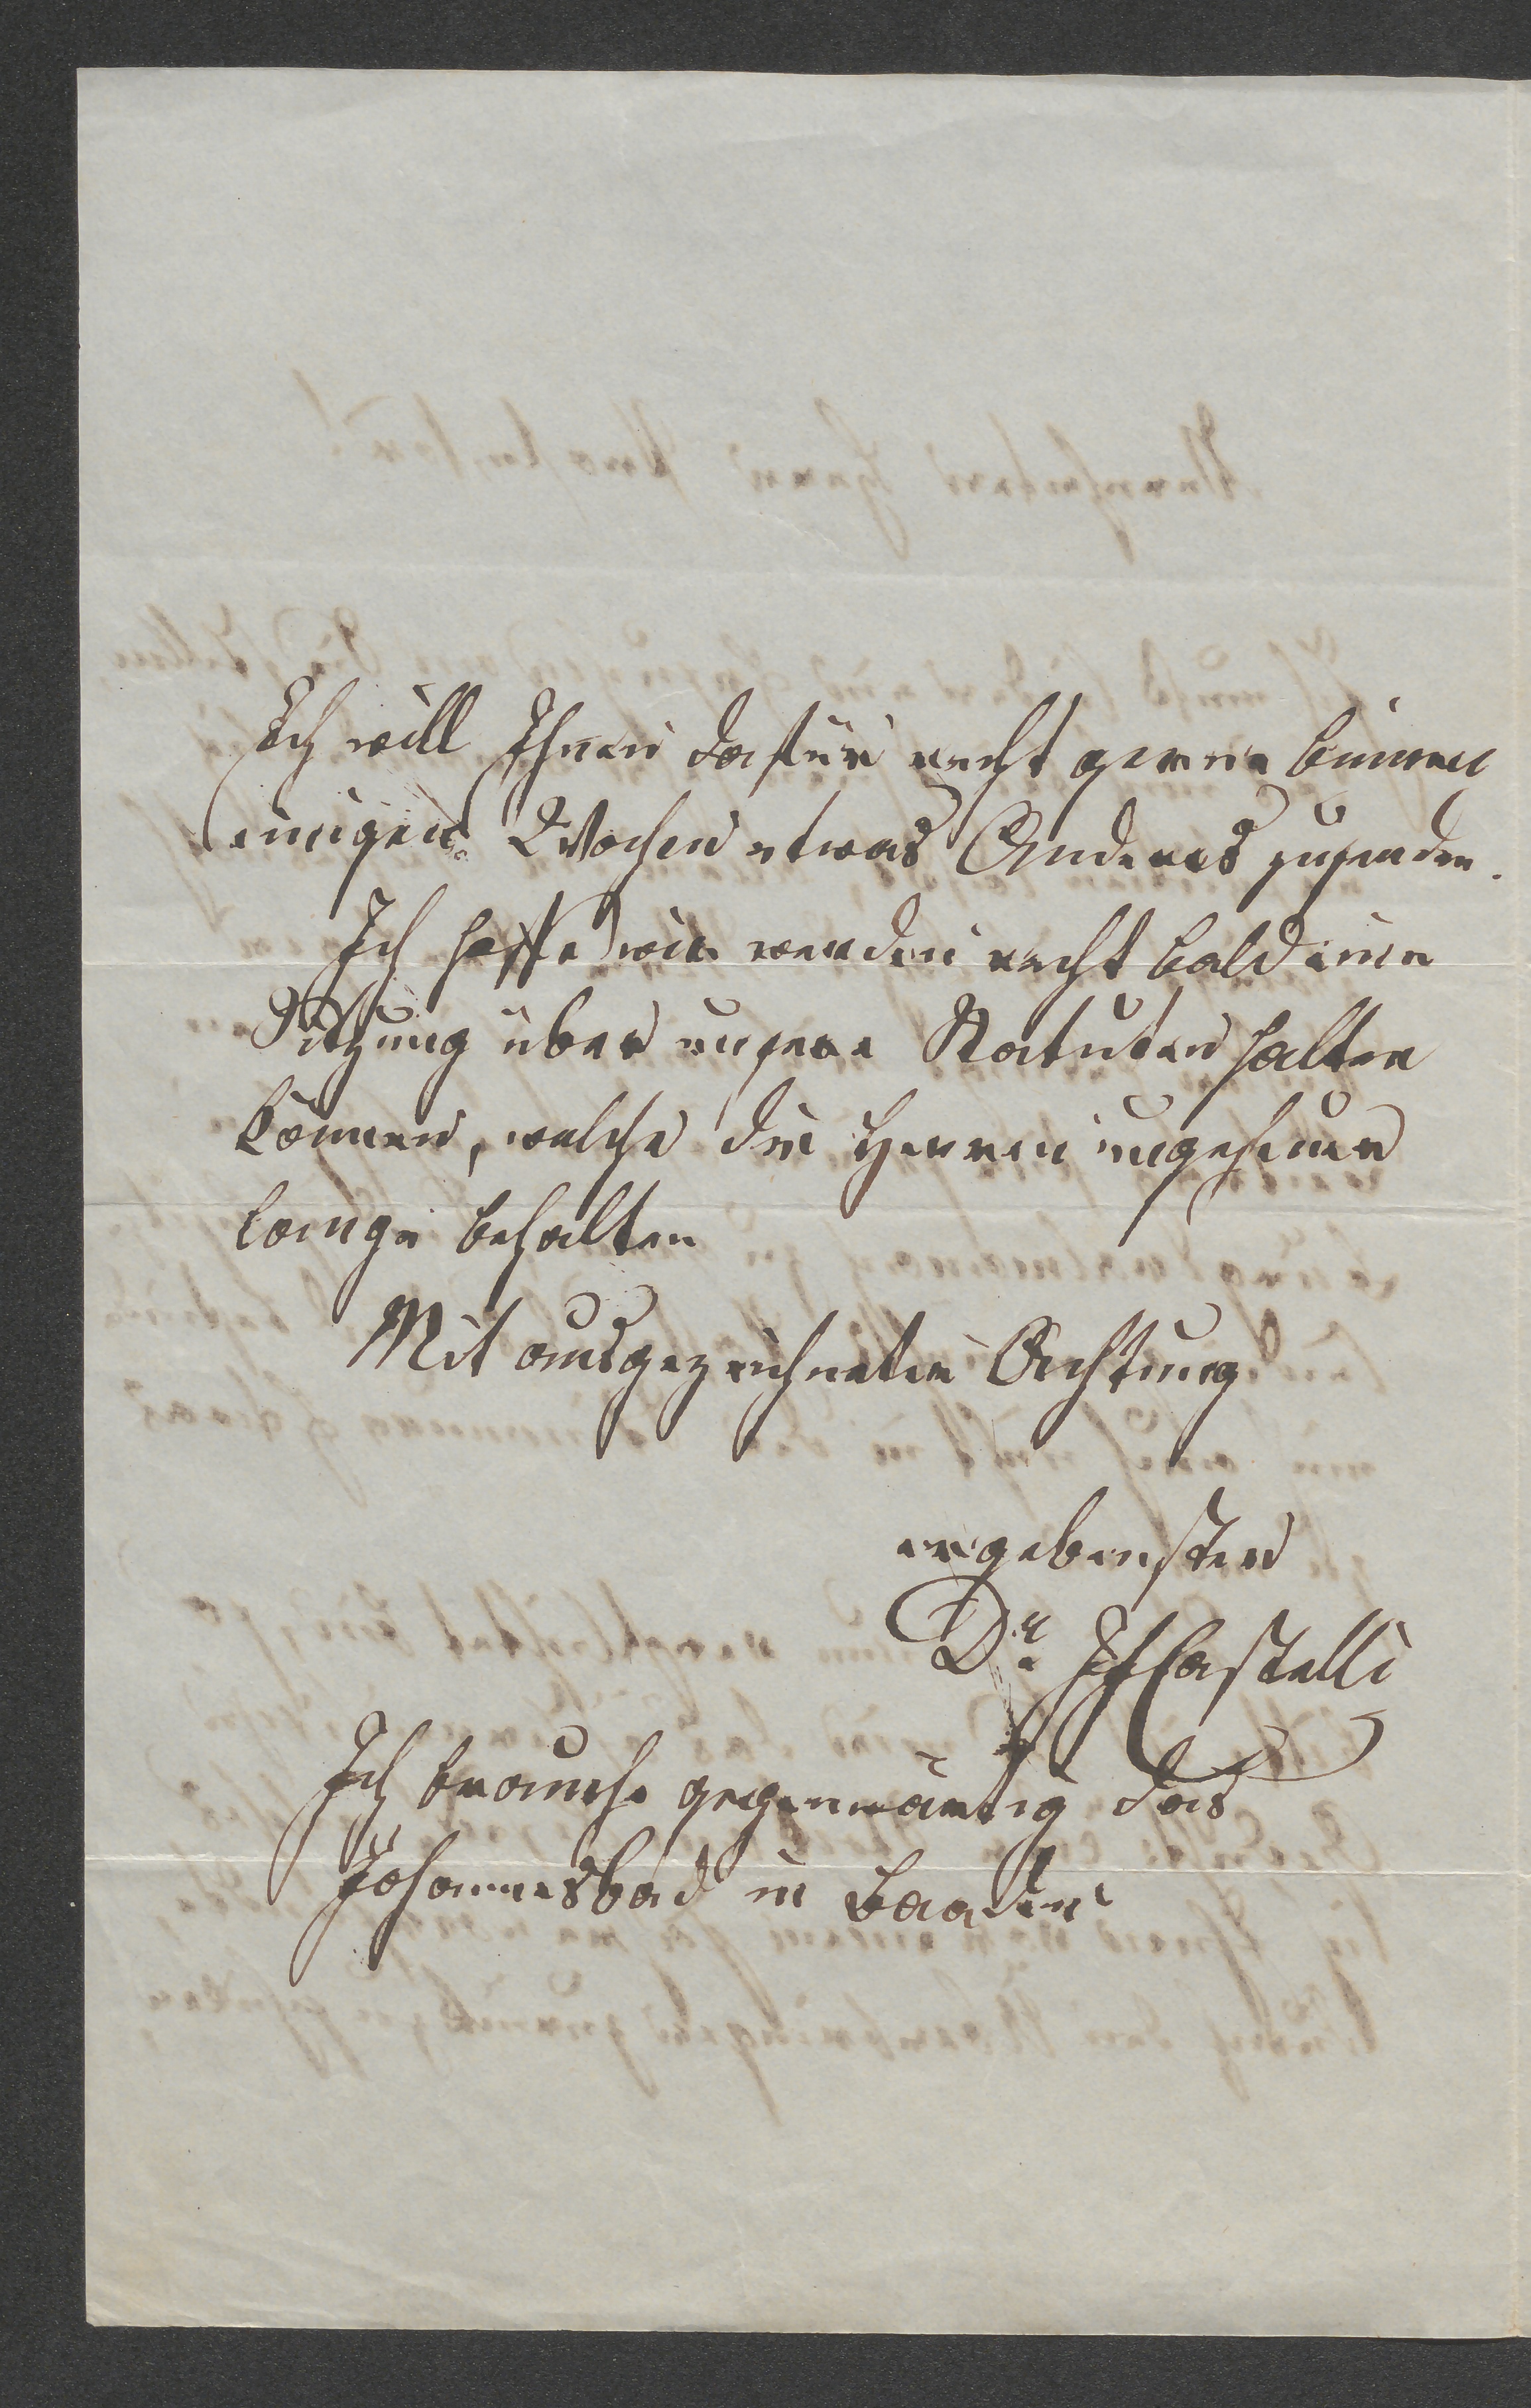 Ich will Ihnen dafür recht gerne binnen
einigen Wochen etwas Anderes zusenden.
Ich hoffe wir werden recht bald eine
Sitzung über unsere Statuten halten
können, welche die Herren ungeheuer
lange behalten
Mit ausgezeichneter Achtung
ergebenster
Dr. IFCastelli
Ich brauche gegenwärtig das
Johannesbad in Baaden